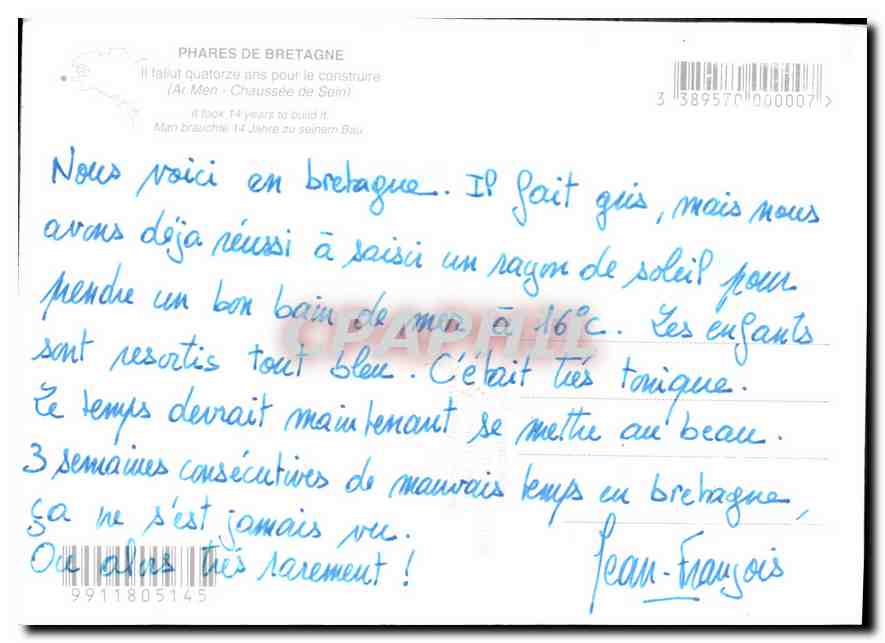 PHARES DE BRETAGNE
Il fallut quatorze ans pour le construire
(Ar Men - Chaussée de Sein)
It took 14 years to build it.
Man brauchte 14 Jahre zu seinem Bau.
3 389570 000007 >
Nous voici en bretagne. Il fait gris, mais nous
avons déja réussi à saisir un rayon de soleil pour
prendre un bon bain de mer à 16°c. Les enfants
sont resortis tout bleu. C'était très tonique.
Le temps devrait maintenant se mettre au beau.
3 semaines consécutives de mauvais temps en bretagne,
ça ne s'est jamais vu.
Ou alors très rarement !
Jean-François
CPAPHIL
9911805145